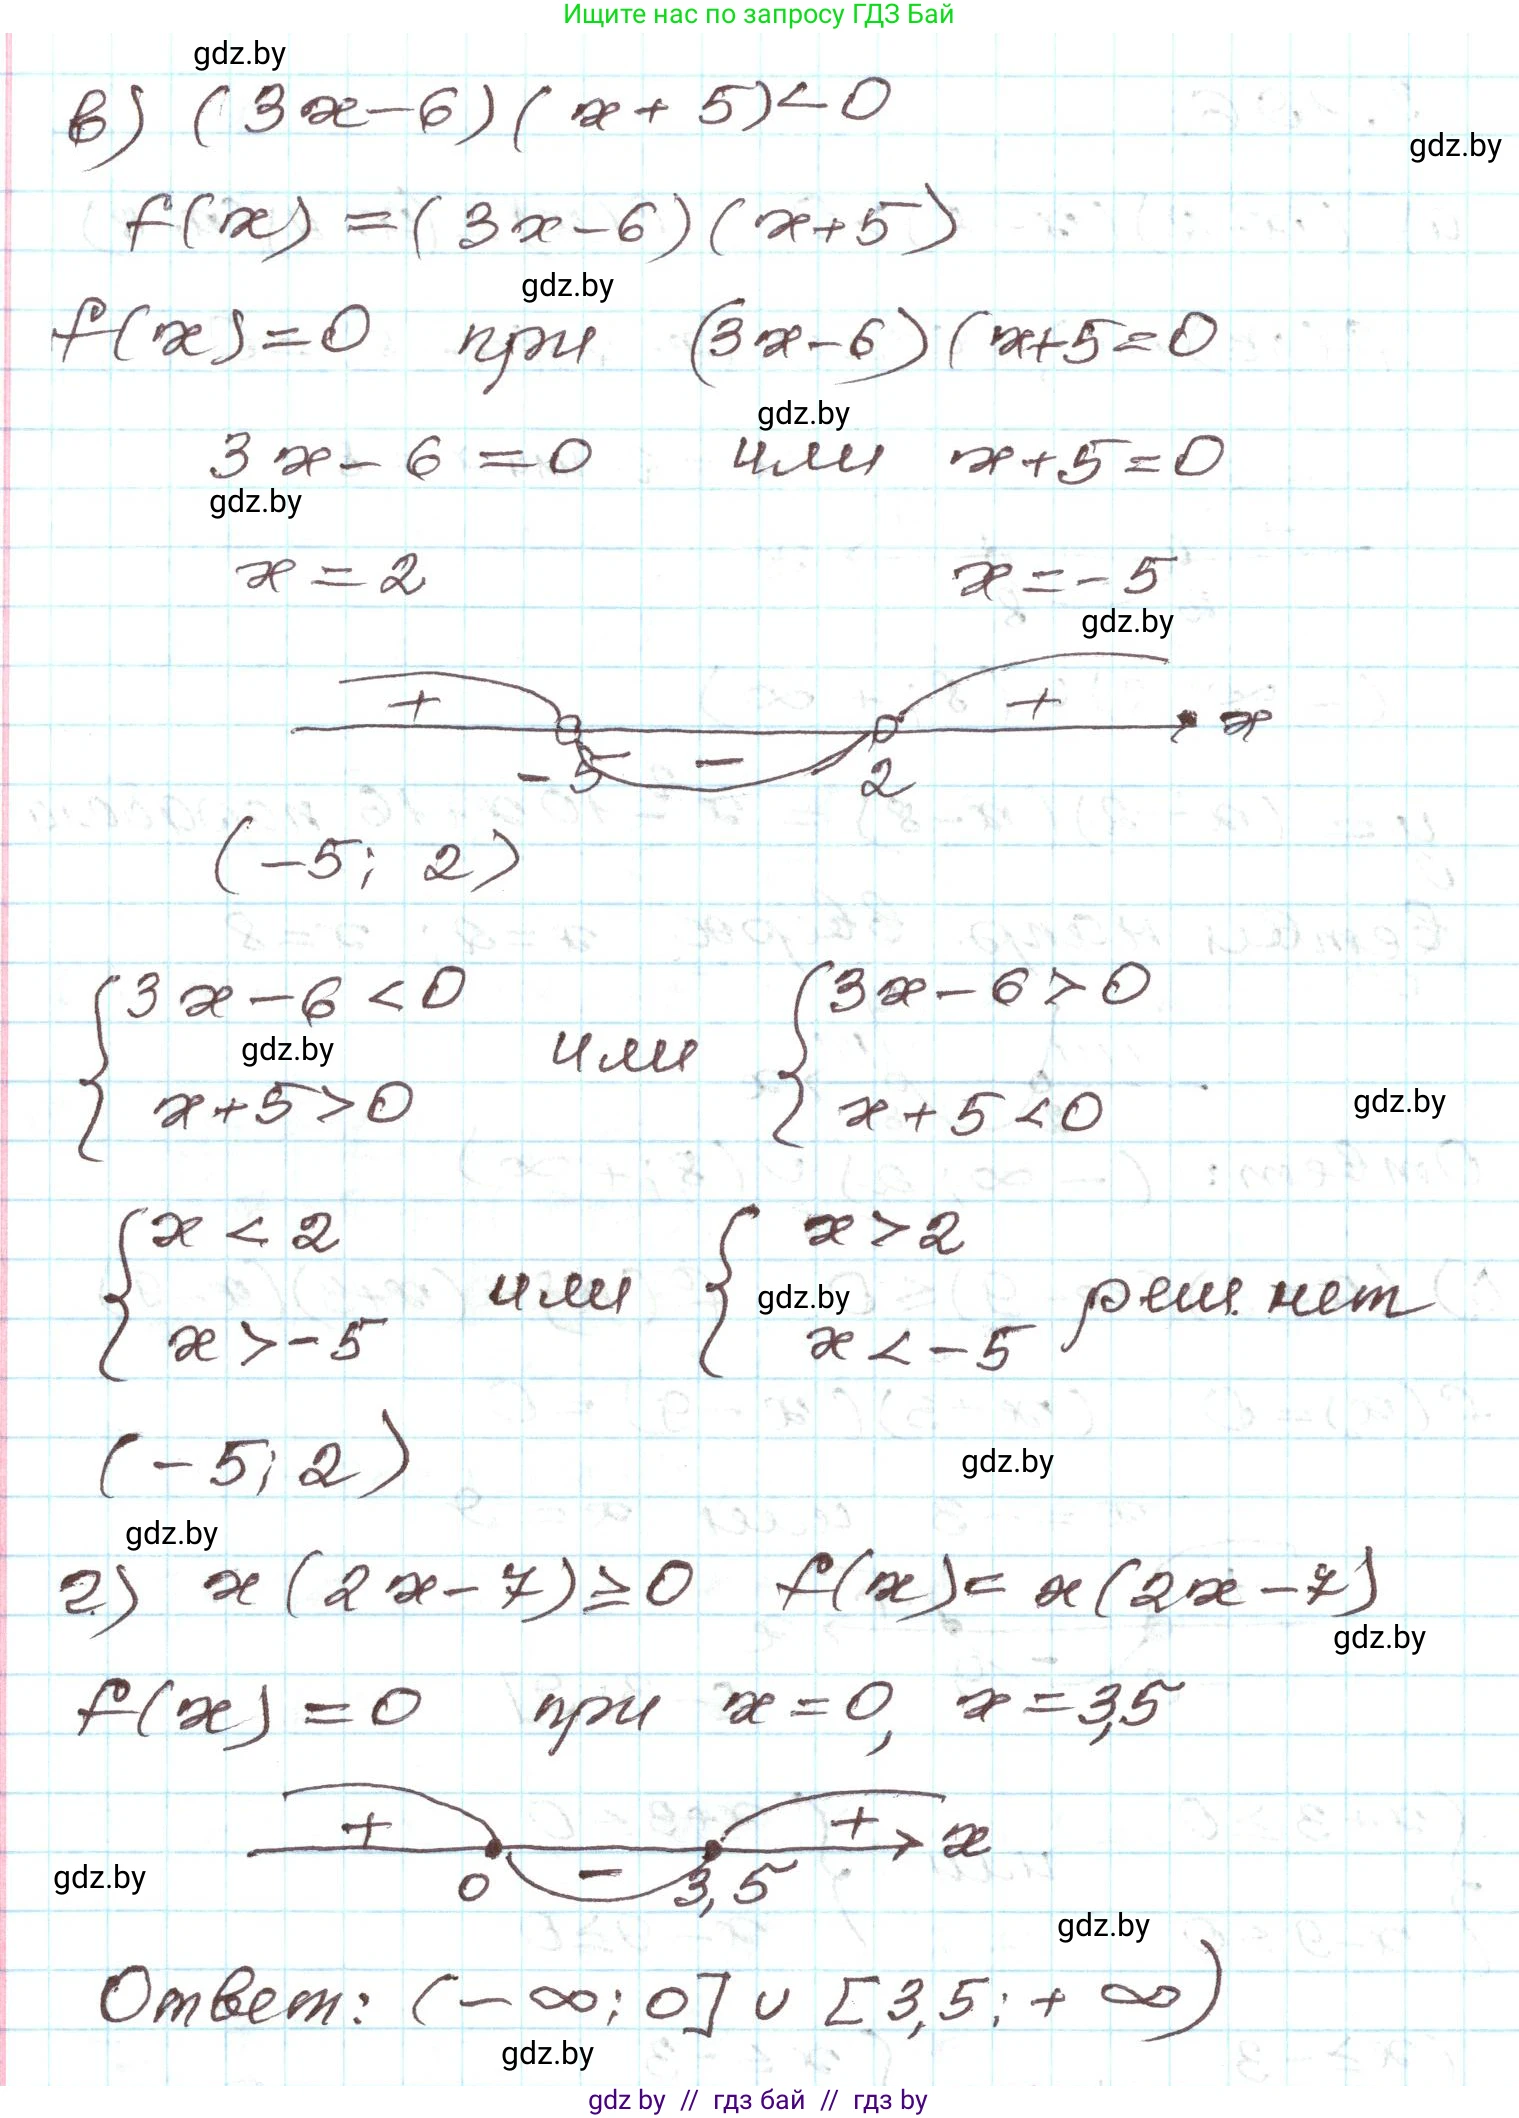 Ищите нас по запросу ГДЗ Бай
gdz.by
в) (3x-6)(x+5)<0
gdz.by
f(x)=(3x-6)(x+5)
gdz.by
f(x)=0 при (3x-6)(x+5=0
gdz.by
3x-6=0 или x+5=0
gdz.by
x=2 x=-5
gdz.by
+ + x
-5 - 2
(-5; 2)
{3x-6<0 или {3x-6>0
gdz.by
x+5>0 x+5<0
gdz.by
{x<2 или {x>2 реш. нет
gdz.by
x>-5 x<-5
(-5; 2)
gdz.by
gdz.by
г) x(2x-7)≥0 f(x)=x(2x-7)
gdz.by
f(x)=0 при x=0, x=3,5
+ + x
gdz.by
0 - 3,5
gdz.by
Ответ: (-∞; 0] ∪ [3,5; +∞)
gdz.by
gdz by // гдз бай // гдз by